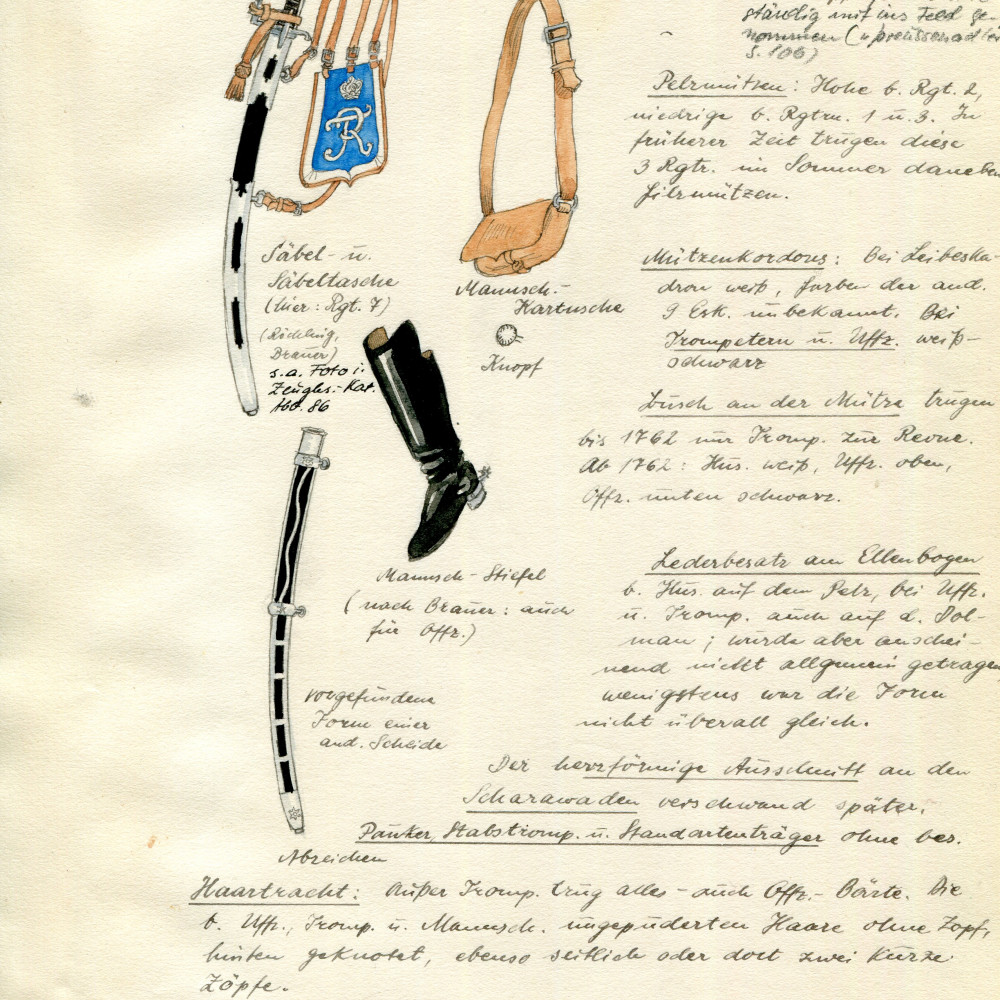 ständig mit ins Feld ge-
nommen (
S. 106)
Pelzmützen: Hohe b. Rgt. 2,
niedrige b. Rgtrn. 1 u. 3. In
früherer Zeit trugen diese
3 Rgtr. im Sommer daneben
Filzmützen.
Mützenkordons: Bei Leibeska-
dron weiß, Farben der and.
9 Esk. unbekannt. Bei
Trompetern u. Uffz. weiß-
schwarz
Busch an der Mütze trugen
bis 1762 nur Tromp. zur Revue.
Ab 1762: Hus. weiß, Uffz. oben,
Offz. unten schwarz.
Lederbesatz am Ellenbogen
b. Hus. auf dem Pelz, bei Uffz.
u. Tromp. auch auf d. Dol-
man; wurde aber anschei-
nend nicht allgemein getragen
wenigstens war die Form
nicht überall gleich.
Der herzförmige Ausschnitt an den
Scharawaden verschwand später.
Pauker, Stabstromp. u. Standartenträger ohne bes.
Abzeichen
Haartracht: Außer Tromp. trug alles - auch Offz. - Bärte. Die
b. Uffz., Tromp. u. Mannsch. ungepuderten Haare ohne Zopf,
hinten geknotet, ebenso seitlich oder dort zwei kurze
Zöpfe.
Säbel- u.
Säbeltasche
(hier: Rgt. 7)
(Röchling,
Brauer)
s.a. Foto i.
Zeughs.-Kat.
Abb. 86
Mannsch.-
Kartusche
Knopf
Mannsch-Stiefel
(nach Brauer: auch
für Offz.)
vorgefundene
Form einer
and. Scheide